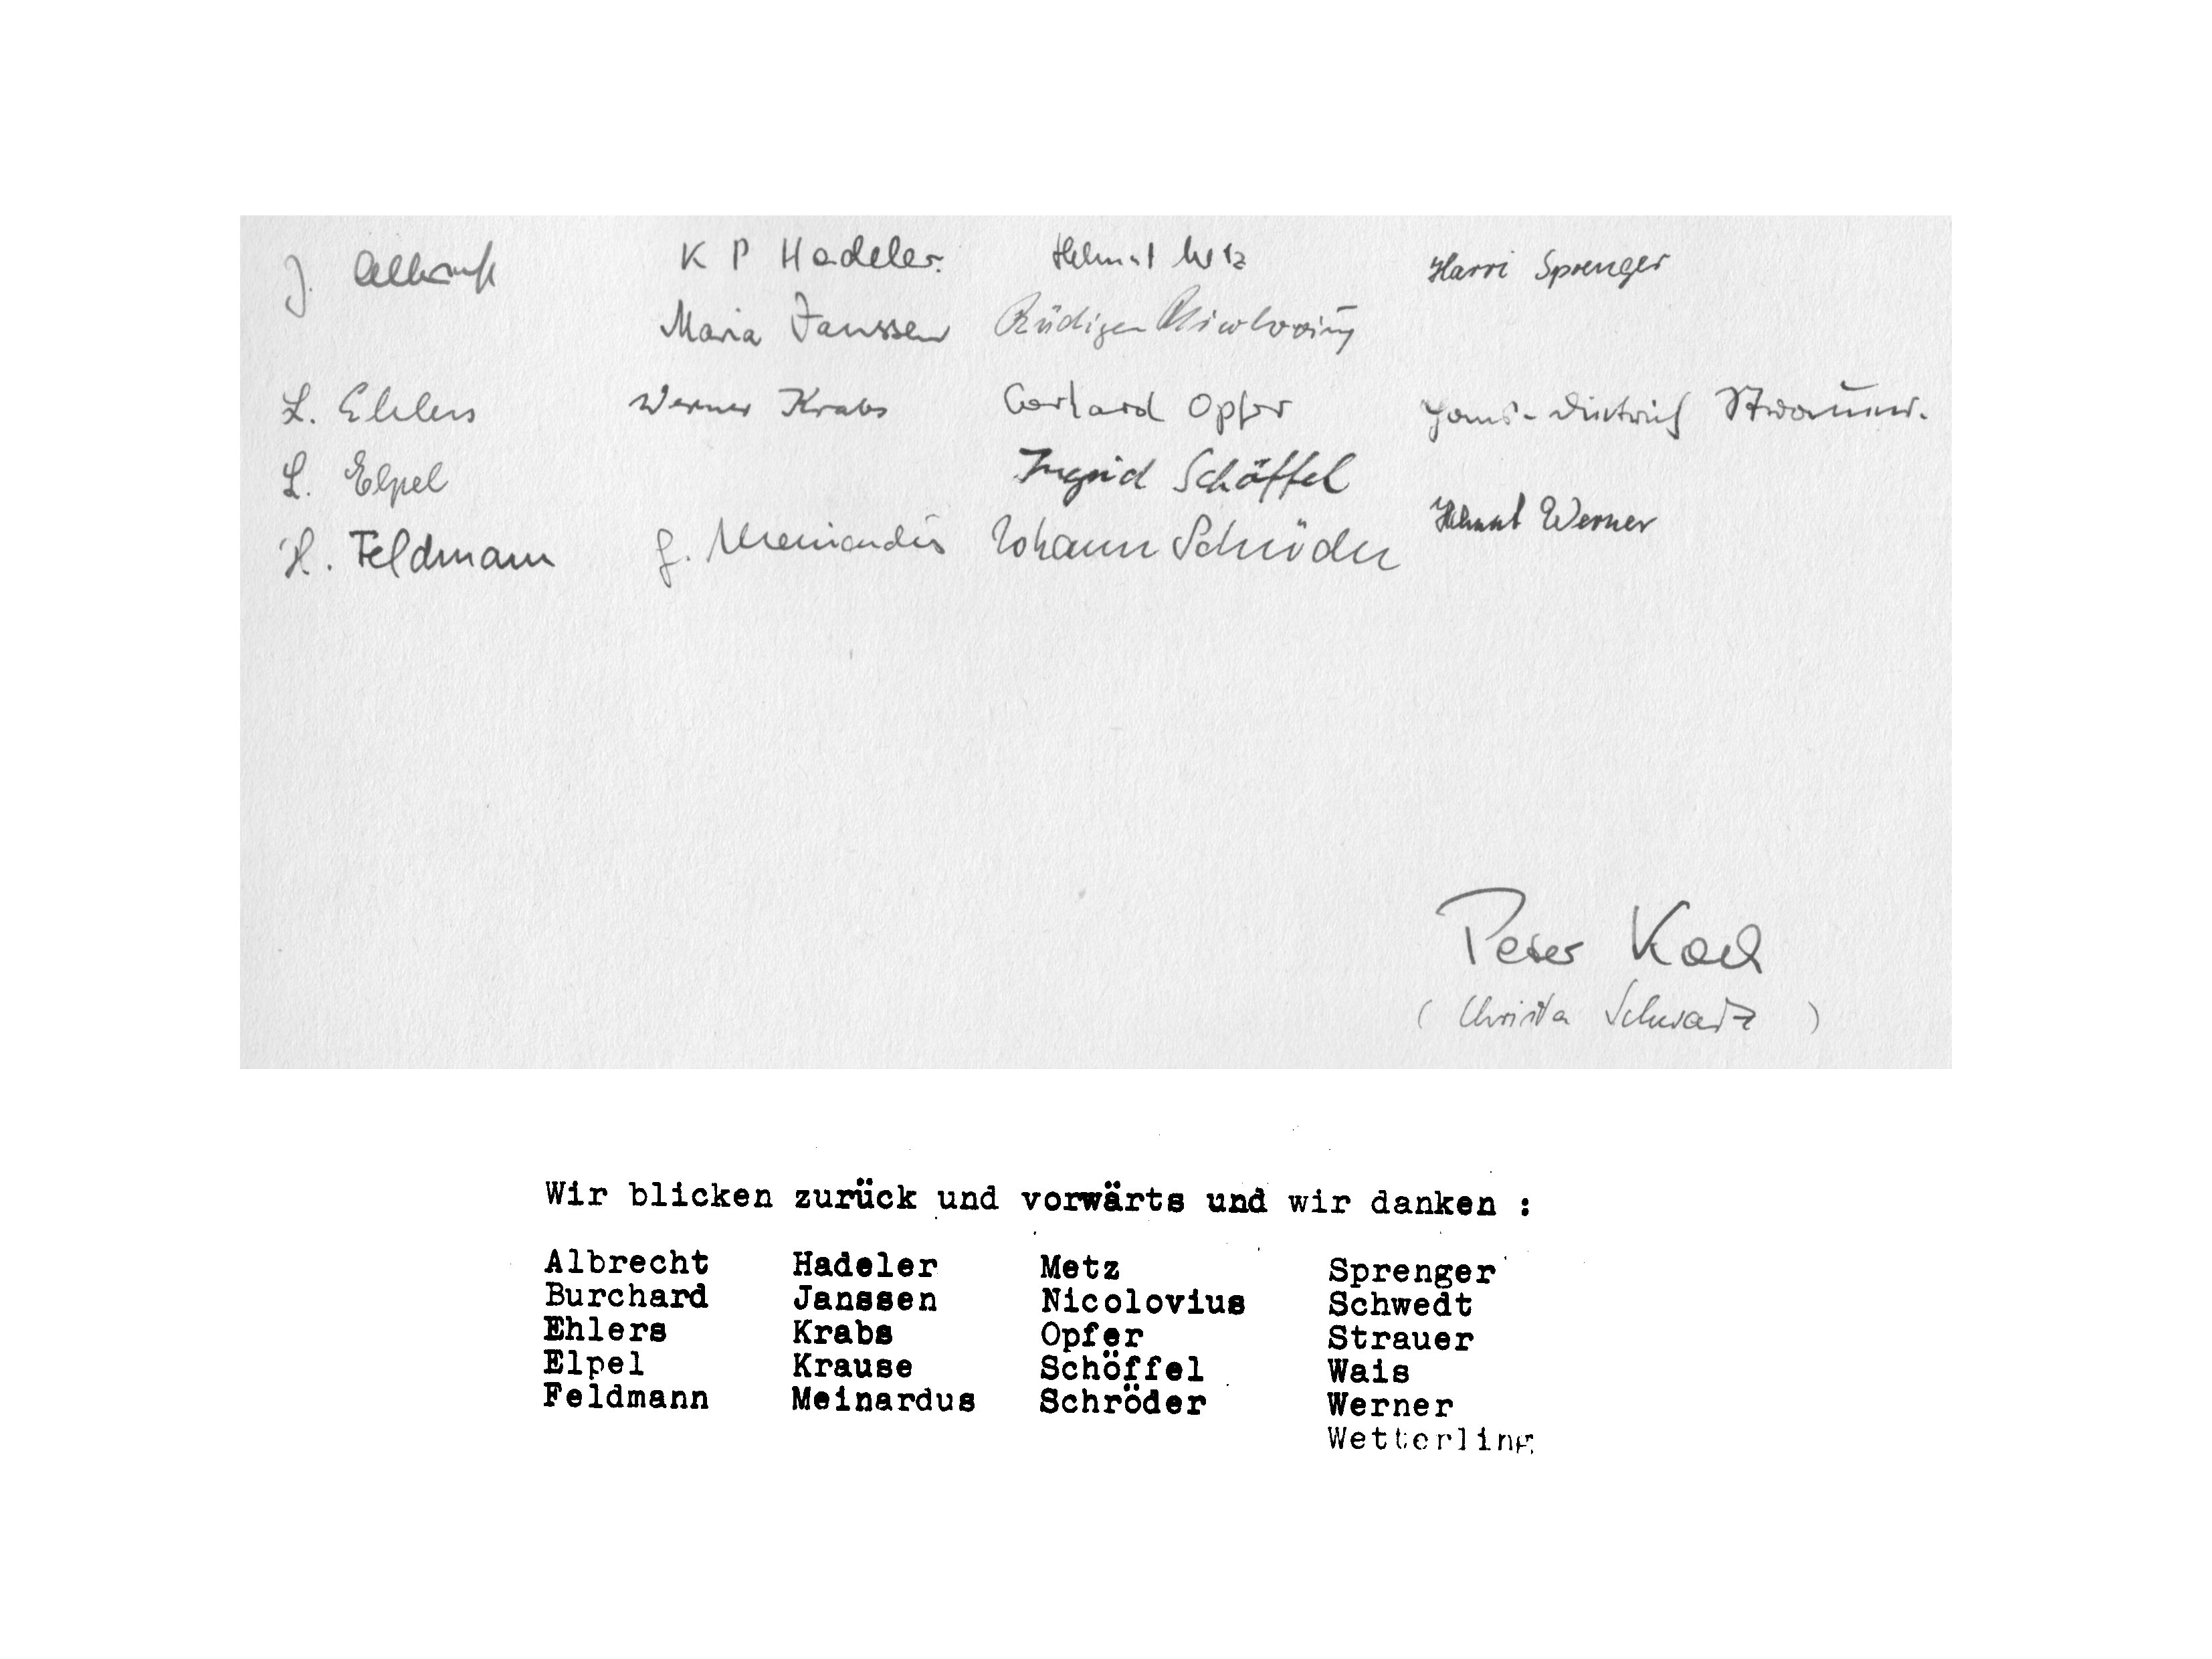 J. Albrecht K P Hadeler Helmut Metz Harri Sprenger
Maria Janssen Rüdiger Nicolovius
L. Ehlers Werner Krabs Gerhard Opfer Hans-Dietrich Strauer
L. Elpel Ingrid Schöffel
H. Feldmann G. Meinardus Johann Schröder Helmut Werner
Peter Koch
( Christa Schwarz )
Wir blicken zurück und vorwärts und wir danken :
Albrecht Hadeler Metz Sprenger
Burchard Janssen Nicolovius Schwedt
Ehlers Krabs Opfer Strauer
Elpel Krause Schöffel Wais
Feldmann Meinardus Schröder Werner
Wetterling